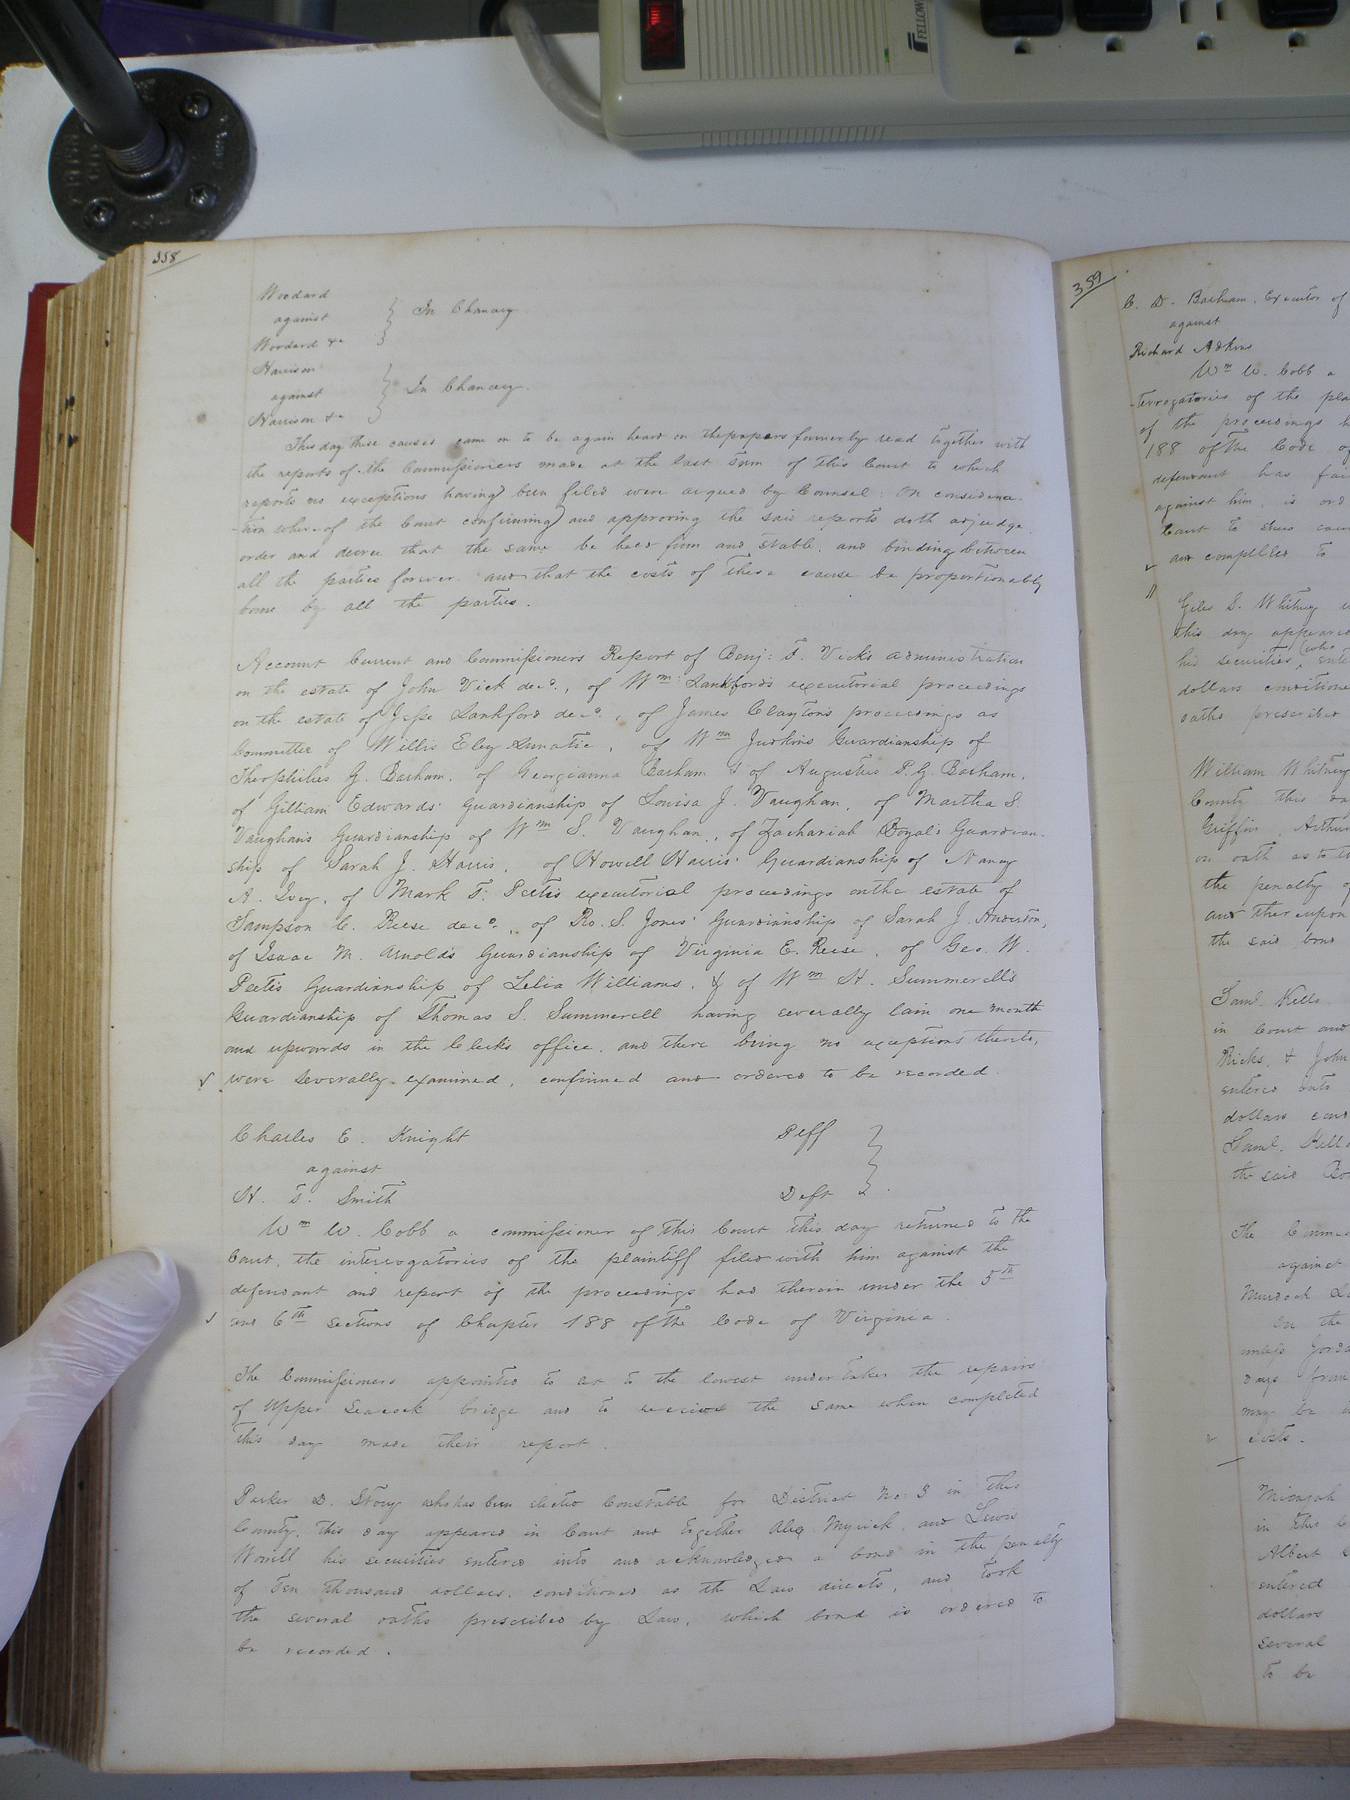 FELLOW
358
Woodard
against } In Chancery
Woodard &c
Harrison
against } In Chancery.
Harrison &c
This day these causes came on to be again heard on the papers formerly read together with
the reports of the Commissioners made at the last Term of this Court to which
reports no exceptions having been filed were argued by Counsel. On considera-
-tion whereof the Court confirming and approving the said reports doth adjudge
order and decree that the same be held firm and stable, and binding between
all the parties forever. and that the costs of these cause be proportionably
borne by all the parties.
Account Current and Commissioners Report of Benj: F. Vicks administration
on the estate of John Vick decd., of Wm. Lankfords executorial proceedings
on the estate of Jesse Lankford decd., of James Claytons proceedings as
Committee of Willis Eley Lunatic, of Wm Judkins Guardianship of
Theophilus G. Barham, of Georgianna Barham & of Augustus P. G. Barham,
of Gilliam Edwards' guardianship of Louisa J. Vaughan, of Martha S.
Vaughan's Guardianship of Wm S. Vaughan, of Zachariah Boyal's Guardian-
ship of Sarah J. Harris, of Howell Harris' Guardianship of Nancy
A. Ivey, of Mark F. Peete's executorial proceedings on the estate of
Sampson C. Reese decd., of Ro. S. Jones' Guardianship of Sarah J. Anderson,
of Isaac M. Arnold's Guardianship of Virginia E. Reese, of Geo. W.
Peete's Guardianship of Lelia Williams, & of Wm H. Summerell's
Guardianship of Thomas S. Summerell having severally lain one month
and upwards in the Clerk's office, and there being no exceptions thereto,
were severally examined, confirmed and ordered to be recorded.
Charles E. Knight Plff
against
H. T. Smith Deft
Wm W. Cobb a commissioner of this Court this day returned to the
Court, the interrogatories of the plaintiff filed with him against the
defendant and report of the proceedings had therein under the 5th
and 6th sections of Chapter 188 of the Code of Virginia.
The Commissioners appointed to let to the lowest undertaker the repairs
of Upper Seacock bridge and to receive the same when completed
this day made their report.
Parker D. Story who has been elected Constable for District No 3 in this
County, this day appeared in Court and together Alex Myrick, and Lewis
Worrell his securities entered into and acknowledged a bond in the penalty
of Ten thousand dollars, conditioned as the Law directs, and took
the several oaths prescribed by Law, which bond is ordered to
be recorded.
359
C. D. Barham, Executor of
against
Richard Adkins
Wm W. Cobb a
-terrogatories of the pla
of the proceedings h
188 of the Code of
defendant has fai
against him, is ord
Court to shew cau
and compelled to
Giles S. Whitney
this day appeared
his securities, (who ente
dollars conditione
oaths prescribed
William Whitney
County this da
Griffin, Arthur
on oath as to th
the penalty of
and thereupon
the said bond
Saml. Kello
in Court and
Ricks, & John
entered into
dollars cond
Saml. Kello
the said Bo
The Comm
against
Murdock
On the
unless Jorda
days from
may be
costs.
Micajah
in this C
Albert
entered
dollars
several
to be